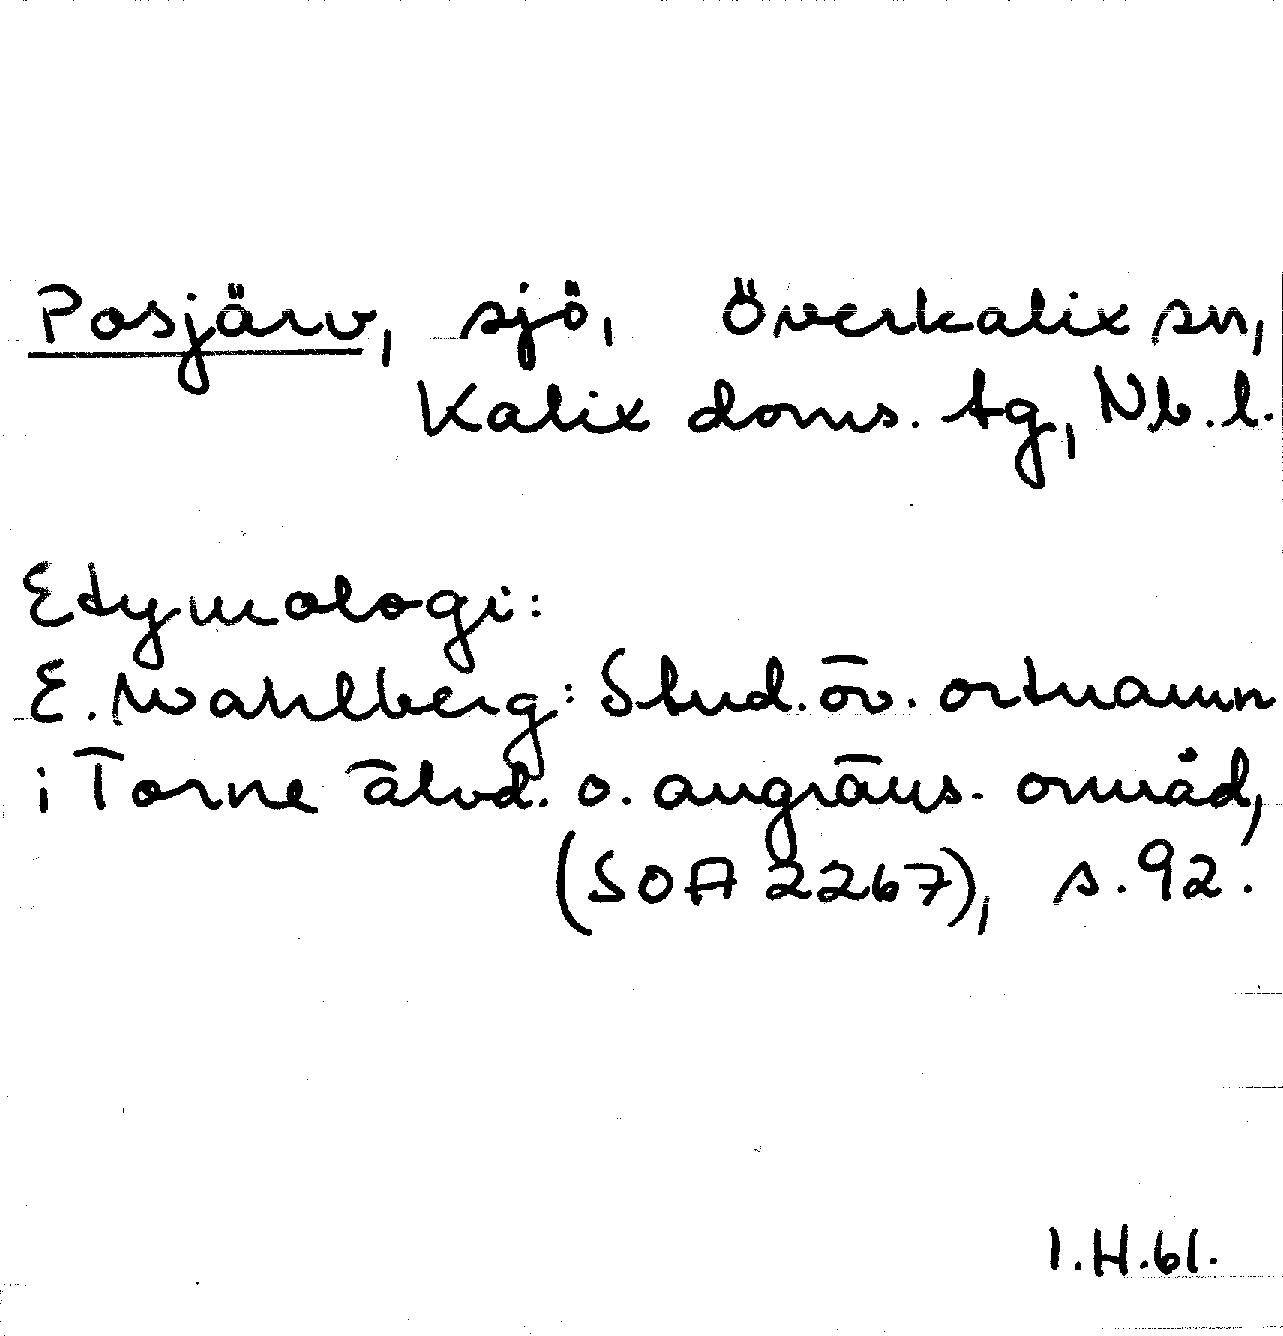 Posjärv, sjö, Överkalix sn,
Kalix doms. tg, Nb. l.
Etymologi:
E. Wahlberg: Stud. öv. ortnamn
i Torne älvd. o. angräns. område,
(SOA 2267), s. 92.
I.H. 61.